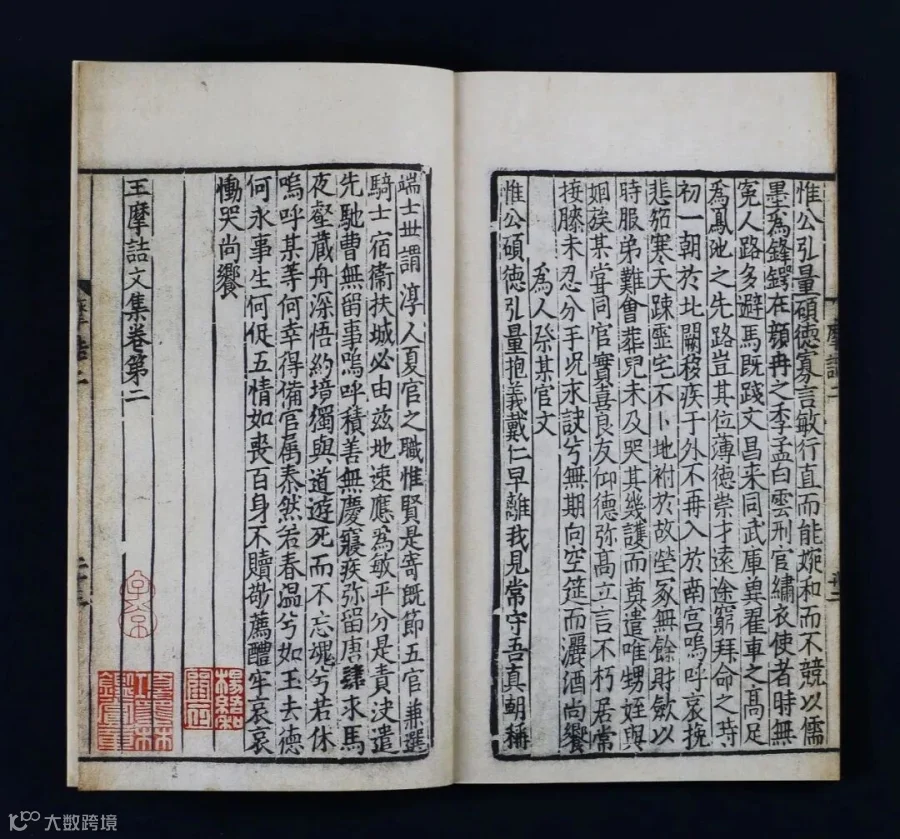 惟公引量碩德寡言敏行直而能婉和而不競以儒
墨為鋒鍔在顏冉之季孟白雲刑官繡衣使者時無
寃人路多避馬既踐文昌来同武庫翚翟車之髙足
為鳳池之先路豈其位薄德崇才遠途窮拜命之時
初一朝於北闕移疾于外不再入於南宫嗚呼哀挽
悲笳寒天踈靈宅不卜地祔於故塋家無餘財歛以
時服弟難會葬児未及哭其幾護而奠遣唯甥姪與
姻族某甞同官實喜良友仰德弥髙立言不朽居常
接膝未忍分手况求訣兮無期向空筵而灑酒尚饗
為人祭某官文
惟公碩德引量抱義戴仁早離我見常守吾真朝稱
端士世謂淳人夏官之職惟賢是寄既節五官兼選
騎士宿衞扶城必由兹地速應為敏平分是責决遣
先馳曹無留事嗚呼積善無慶寢疾弥留唐肆求馬
夜壑蔵舟深悟幻境獨與道遊死而不忘魂兮若休
嗚呼某等何幸得備官属泰然若春温兮如玉去德
何永事生何促五情如喪百身不贖敬薦醴牢哀哀
慟哭尚饗
王摩詰文集卷第二
楊紹和
大数跨境